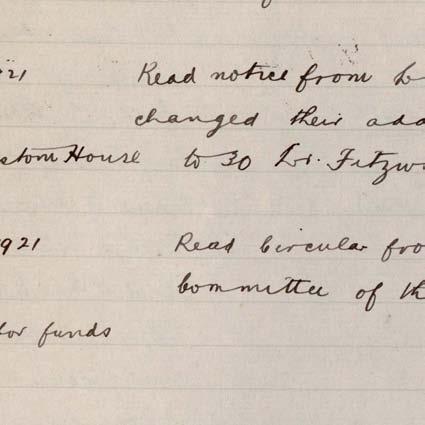 21 Read notice from
changed their add
stom House to 30 Lr. Fitzw
921 Read Circular fro
Committee of th
for funds